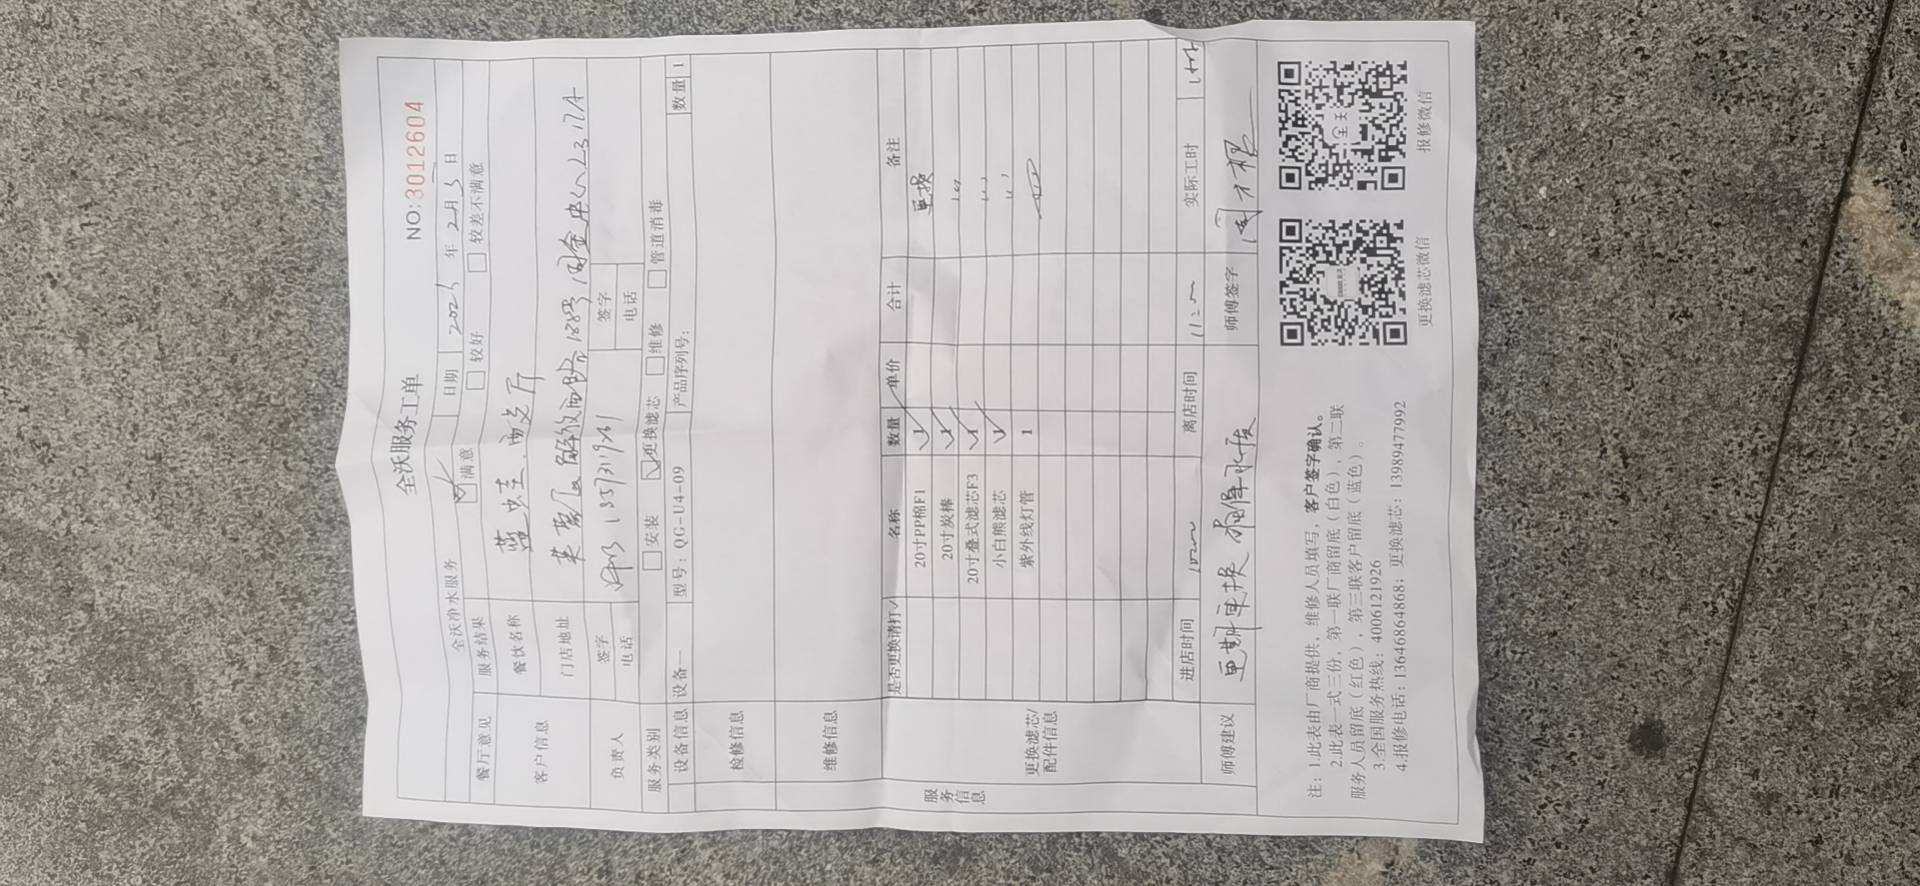 全沃服务工单
NO:3012604
全沃净水服务 日期 2025年2月5日
餐厅意见 服务结果 满意 较好 较差不满意
客户信息 餐饮名称 蓝蛙西餐厅
门店地址 解放西路188号 中心L3 17A
负责人 签字 签字
电话 电话
服务类别 安装 更换滤芯 维修 管道消毒
设备信息 设备一 型号: QG-U4-09 产品序列号: 数量 1
检修信息
维修信息
服务信息
更换滤芯/配件信息
是否更换请打√ 名称 数量 单价 合计 备注
20寸PP棉F1 1 更换
20寸炭棒 1 〃
20寸叠式滤芯F3 1 〃
小白熊滤芯 1 〃
紫外线灯管 1
进店时间 离店时间 实际工时
师傅建议 更换 水质 师傅签字
注: 1.此表由厂商提供, 维修人员填写, 客户签字确认。
2.此表一式三份, 第一联厂商留底 (白色), 第二联
服务人员留底 (红色), 第三联客户留底 (蓝色)。
3.全国服务热线: 4006121926
4.报修电话: 13646864868; 更换滤芯: 13989477992
更换滤芯微信
报修微信
全天